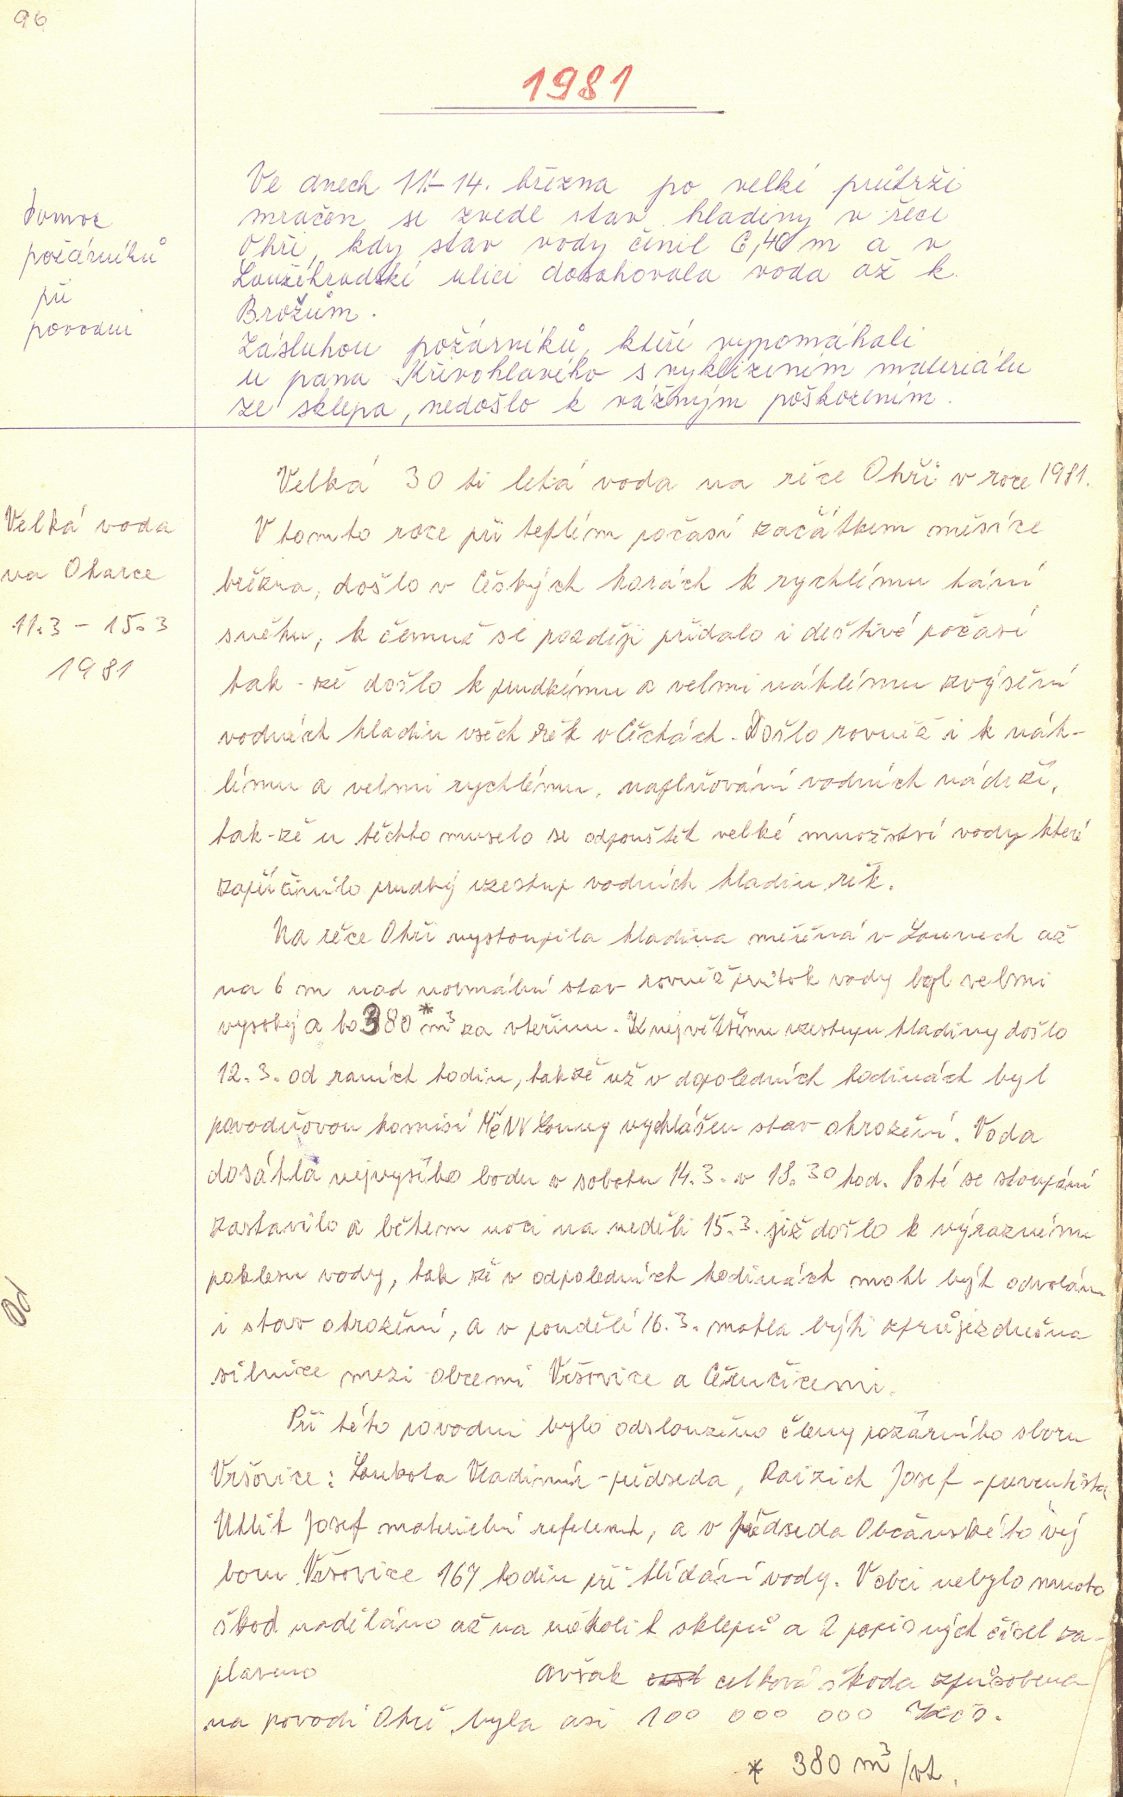 96
1981
Pomoc
požárníků
při
povodni
Ve dnech 11.-14. března po velké průtrži
mračen se zvedl stav hladiny v řece
Ohři, kdy stav vody činil 6,40 m a v
Loužihradské ulici dosahovala voda až k
Brožům.
Zásluhou požárníků, kteří vypomáhali
u pana Křivohlavého s vyklizením materiálu
ze sklepa, nedošlo k vážným poškozením.
Velká voda
na Oharce
11.3 - 15.3
1981
Velká 30 ti letá voda na řéce Ohři v roce 1981.
V tomto roce při teplém počasí začátkem měsíce
března, došlo v Českých horách k rychlému tání
sněhu, k čemuž se později přidalo i deštivé počasí
tak-že došlo k prudkému a velmi náhlému zvýsění
vodních hladin všech řěk v Čéchách. Došlo rovněž i k náh-
lému a velmi rychlému, naplňování vodních nádrží,
tak-že u těchto muselo se odpouštět velké množství vody které
zapříčinilo prudký vzestup vodních hladin řek.
Na réce Ohři vystoupila hladina meřéná v Lounech až
na 6 m nad normální stav rovněž průtok vody byl velmi
vysoký a to 380* m³ za vteřinu. K největšímu vzestupu hladiny došlo
12.3. od raních hodin, takže už v dopoledních hodinách byl
povodňovou komisí MěNV Louny vyhlášen stav ohrožení. Voda
dosáhla nejvysího bodu v sobotu 14.3. v 18.30 hod. Poté se stoupání
zastavilo a během noci na neděli 15.3. již došlo k výraznému
poklesu vody, tak že v odpoledních hodinách mohl být odvolán
i stav ohrožení, a v pondělí 16.3. mohla být zprůjezdněna
silnice mezi obcemi Vršovice a Černčicemi.
Od
Při této povodni bylo odslouženo členy požárního sboru
Vršovice: Loubota Vladimír - předseda, Josef - preventista
Uhlit Josef materielní referent, a v předseda Občanského vý
boru Vršovice 167 hodin při hlídání vody. V obci nebylo mnoho
škod naděláno až na několik sklepů a 2 popisných čísel za-
plaveno avšak celková škoda způsobena
na povodí Ohře byla asi 100 000 000 Kčs.
* 380 m³/vt.